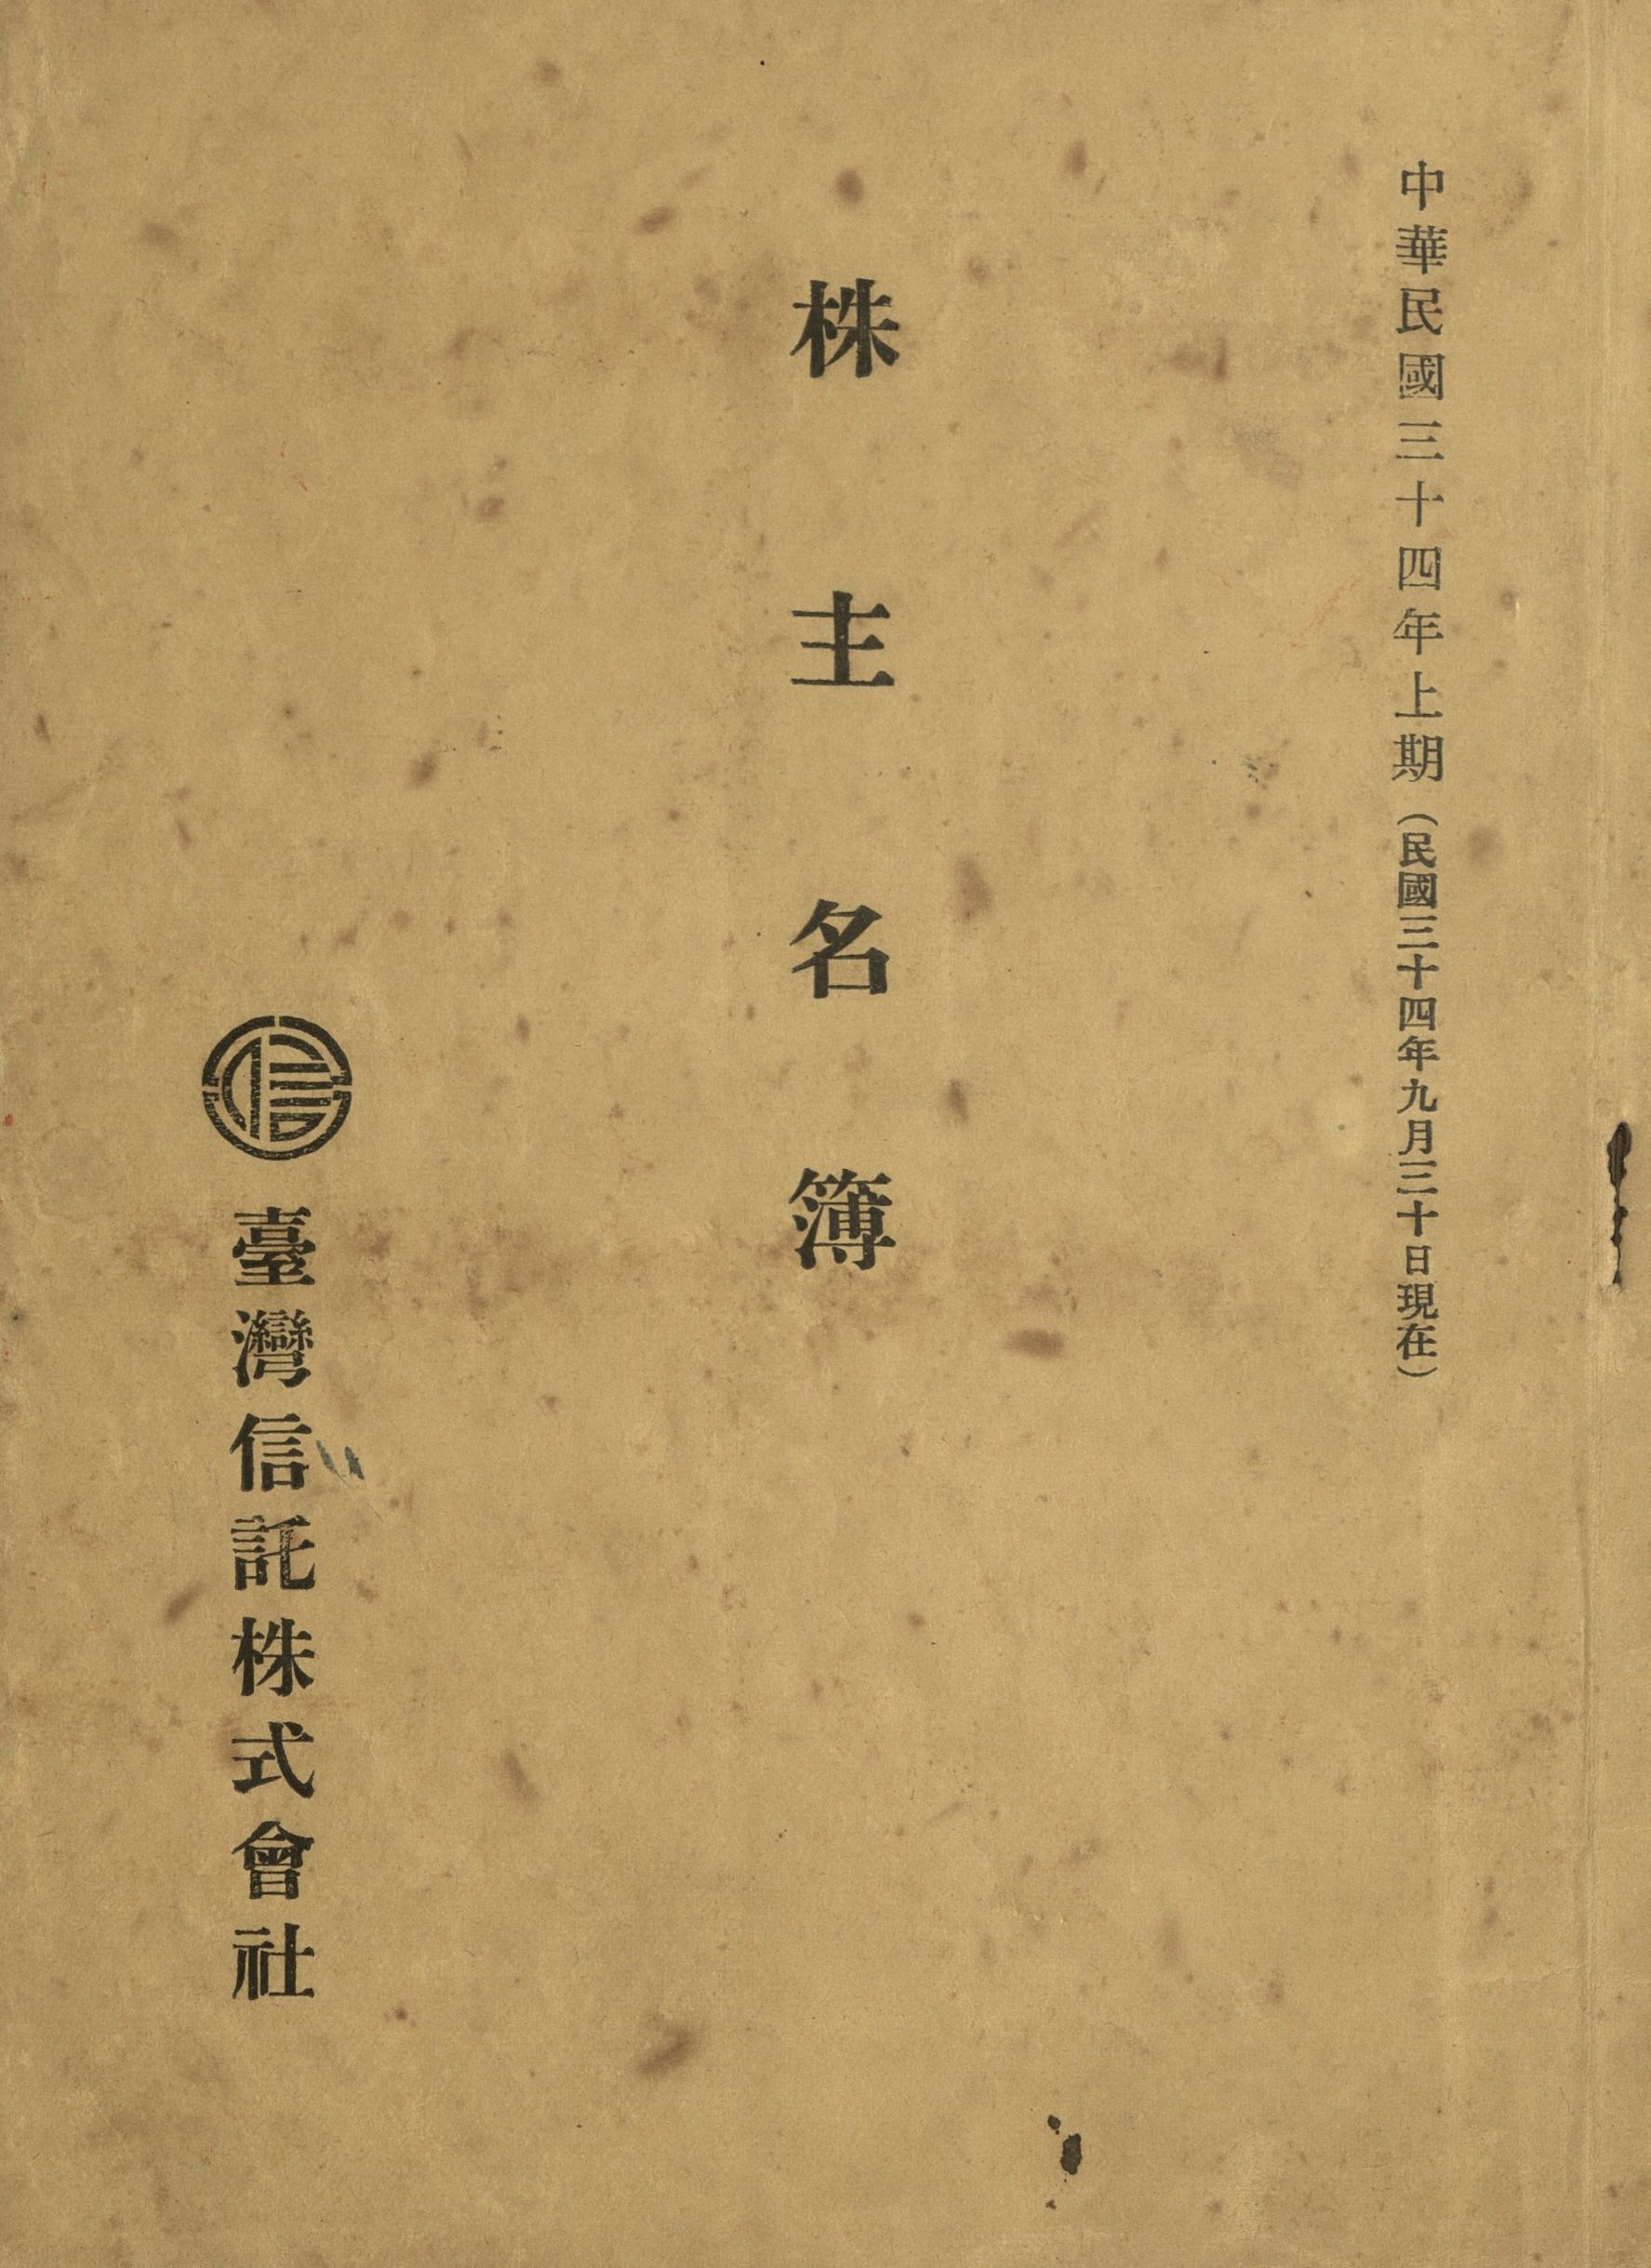 中華民國三十四年上期（民國三十四年九月三十日現在）
株主名簿
信
臺灣信託株式會社